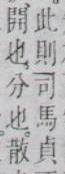 此則司馬貞
開也分也散